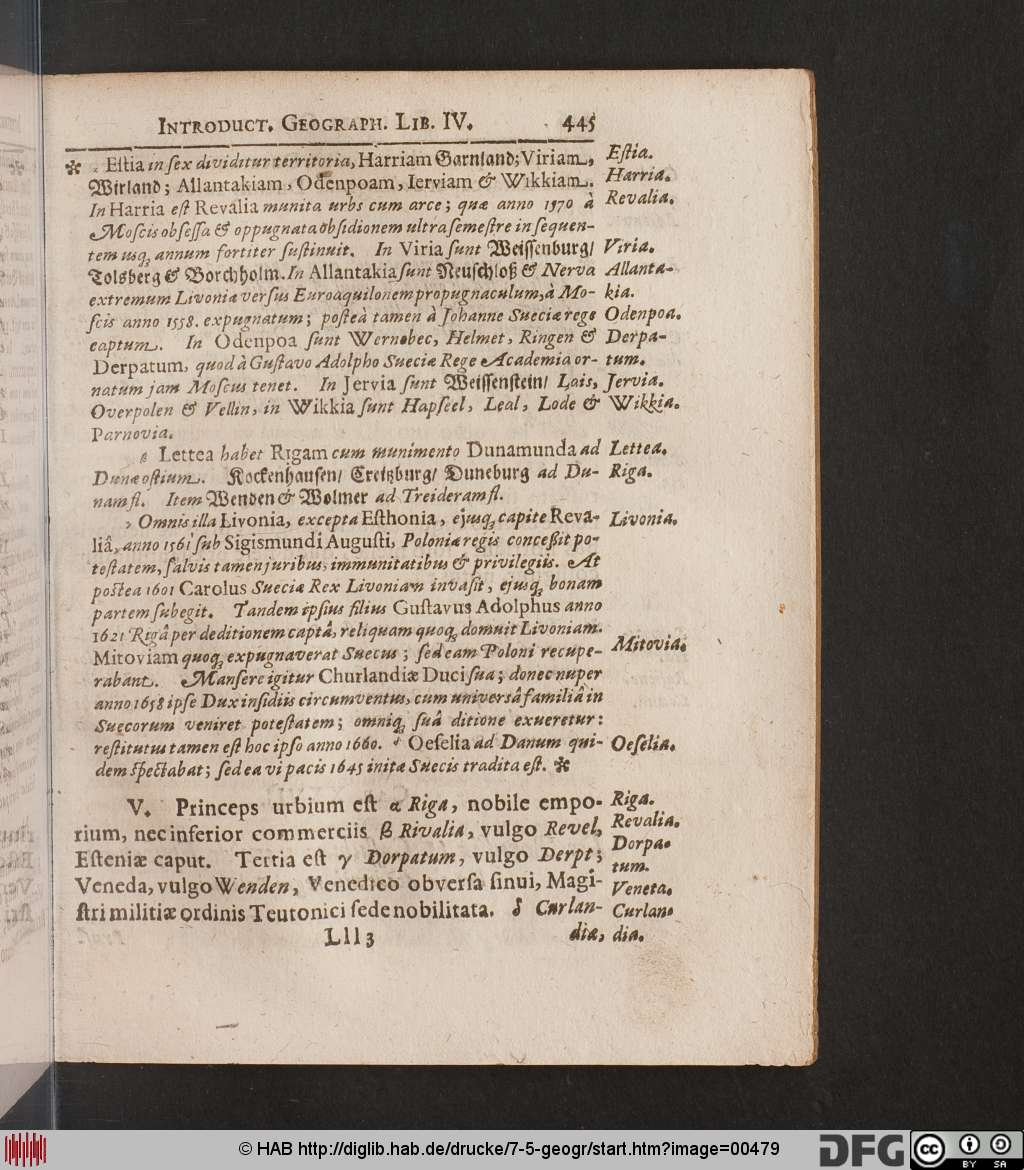 INTRODUCT. GEOGRAPH. LIB. IV. 445
✻ Estia in sex dividitur territoria, Harriam Garnland; Viriam, Estia.
Wirland; Allantakiam, Odenpoam, Ierviam & Wikkiam. Harria.
In Harria est Revalia munita urbs cum arce; quæ anno 1570 à Revalia.
Moscis obsessa & oppugnata obsidionem ultra semestre in sequen-
tem usq; annum fortiter sustinuit. In Viria sunt Weissenburg/ Viria.
Tolsberg & Borchholm. In Allantakia sunt Neuschloß & Nerva Allanta-
extremum Livoniæ versus Euroaquilonem propugnaculum, à Mo- kia.
scis anno 1558. expugnatum; posteà tamen à Johanne Sueciæ rege Odenpoa.
captum. In Odenpoa sunt Wernebec, Helmet, Ringen & Derpa-
Derpatum, quod à Gustavo Adolpho Sueciæ Rege Academia or- tum.
natum jam Moscus tenet. In Jervia sunt Weissenstein/ Lais, Jervia.
Overpolen & Vellin, in Wikkia sunt Hapseel, Leal, Lode & Wikkia.
Parnovia.
Lettea habet Rigam cum munimento Dunamunda ad Lettea.
Dunæ ostium. Kockenhausen/ Creitzburg/ Duneburg ad Du- Riga.
nam fl. Item Wenden & Wolmer ad Treideram fl.
Omnis illa Livonia, excepta Esthonia, ejusq; capite Reva- Livonia.
liâ, anno 1561 sub Sigismundi Augusti, Poloniæ regis conceßit po-
testatem, salvis tamen juribus, immunitatibus & privilegiis. At
postea 1601 Carolus Sueciæ Rex Livoniam invasit, ejusq; bonam
partem subegit. Tandem ipsius filius Gustavus Adolphus anno
1621 Rigâ per deditionem captâ, reliquam quoq; domuit Livoniam.
Mitoviam quoq; expugnaverat Suecus; sed eam Poloni recupe- Mitovia.
rabant. Mansere igitur Churlandiæ Duci sua; donec nuper
anno 1658 ipse Dux insidiis circumventus, cum universâ familiâ in
Suecorum veniret potestatem; omniq; suâ ditione exueretur:
restitutus tamen est hoc ipso anno 1660. Oeselia ad Danum qui- Oeselia.
dem spectabat; sed ea vi pacis 1645 initæ Suecis tradita est. ✻
V. Princeps urbium est α Riga, nobile empo- Riga.
rium, nec inferior commerciis β Rivalia, vulgo Revel, Revalia.
Esteniæ caput. Tertia est γ Dorpatum, vulgo Derpt; Dorpa-
tum.
Veneda, vulgo Wenden, Venedico obversa sinui, Magi- Veneta.
stri militiæ ordinis Teutonici sede nobilitata. δ Curlan- Curlan-
Lll 3 dia, dia.
© HAB http://diglib.hab.de/drucke/7-5-geogr/start.htm?image=00479
DFG cc BY SA